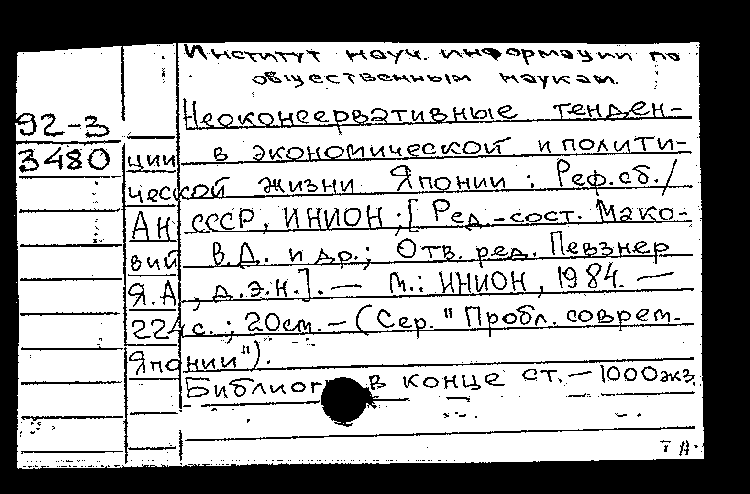 Институт науч. информации по
общественным наукам.
92-3
Неоконсервативные тенден-
3480
ции в экономической и полити-
ческой жизни Японии : Реф.сб./
АН СССР, ИНИОН ;[ Ред.-сост. Мако-
вий В.Д. и др.; Отв. ред. Певзнер
Я.А , д.э.н.]. — М.: ИНИОН, 1984. —
224с. ; 20см. — (Сер. " Пробл. соврем.
Японии").
Библиогр в конце ст. — 1000экз.